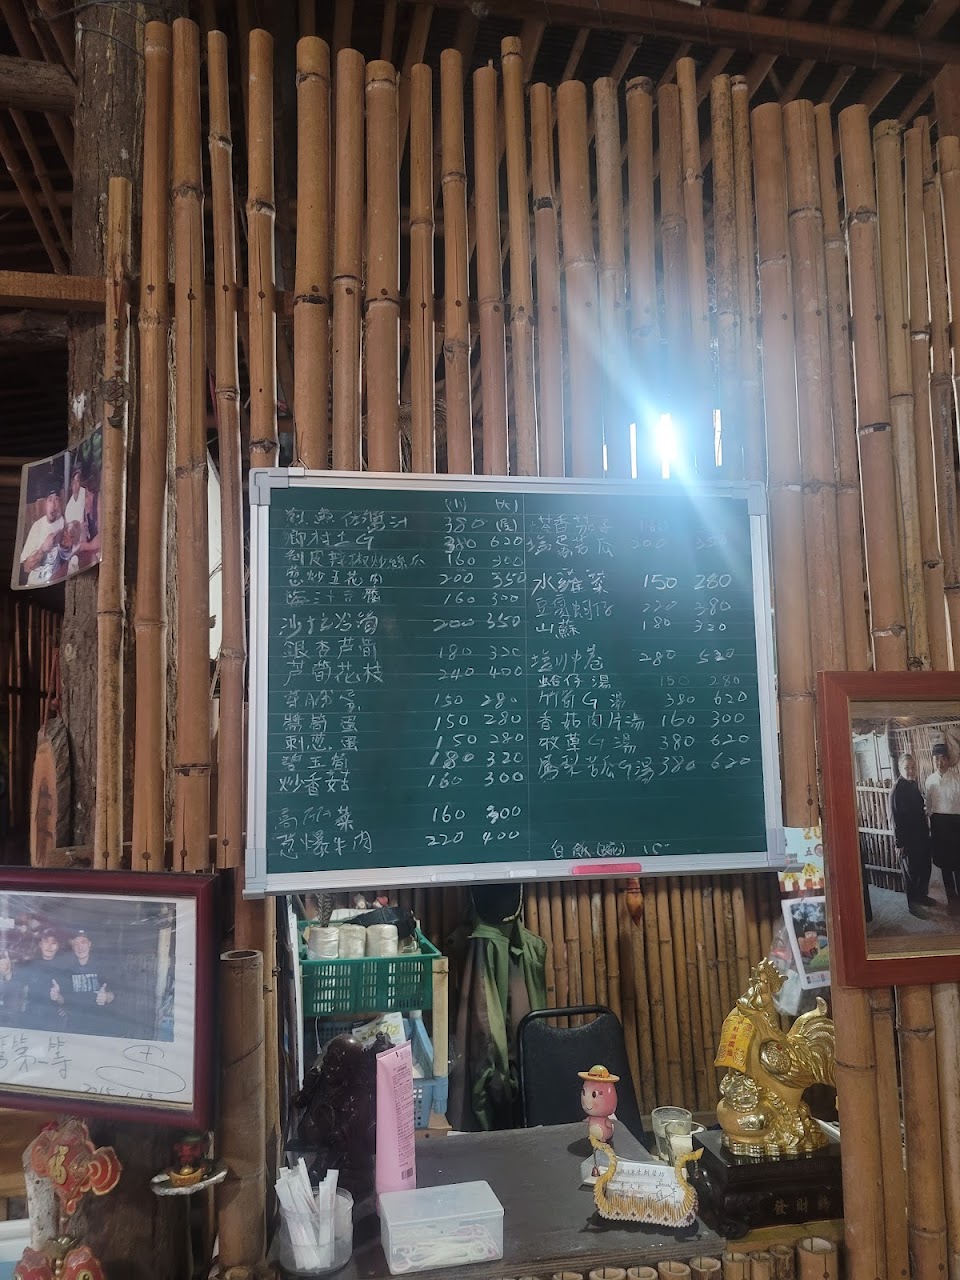 (小) (大)
380 (隻)
鄉村土G 380 620
剝皮辣椒炒絲瓜 160 300
蔥炒五花肉 200 350
160 300
沙拉冷筍 200 350
銀杏芦筍 180 320
芦筍花枝 240 400
菜脯蛋 150 280
醬筍蛋 150 280
刺蔥蛋 150 280
碧玉筍 180 320
炒香菇 160 300
高麗菜 160 300
蔥爆牛肉 220 400
塔香茄子 180
塩蛋苦瓜 200 350
水蓮菜 150 280
豆腐蚵仔 220 380
山蘇 180 320
塩川中卷 280 520
蛤仔湯 150 280
竹筍G湯 380 620
香菇肉片湯 160 300
牧草G湯 380 620
鳳梨苦瓜G湯 380 620
白飯(碗) 15
發財